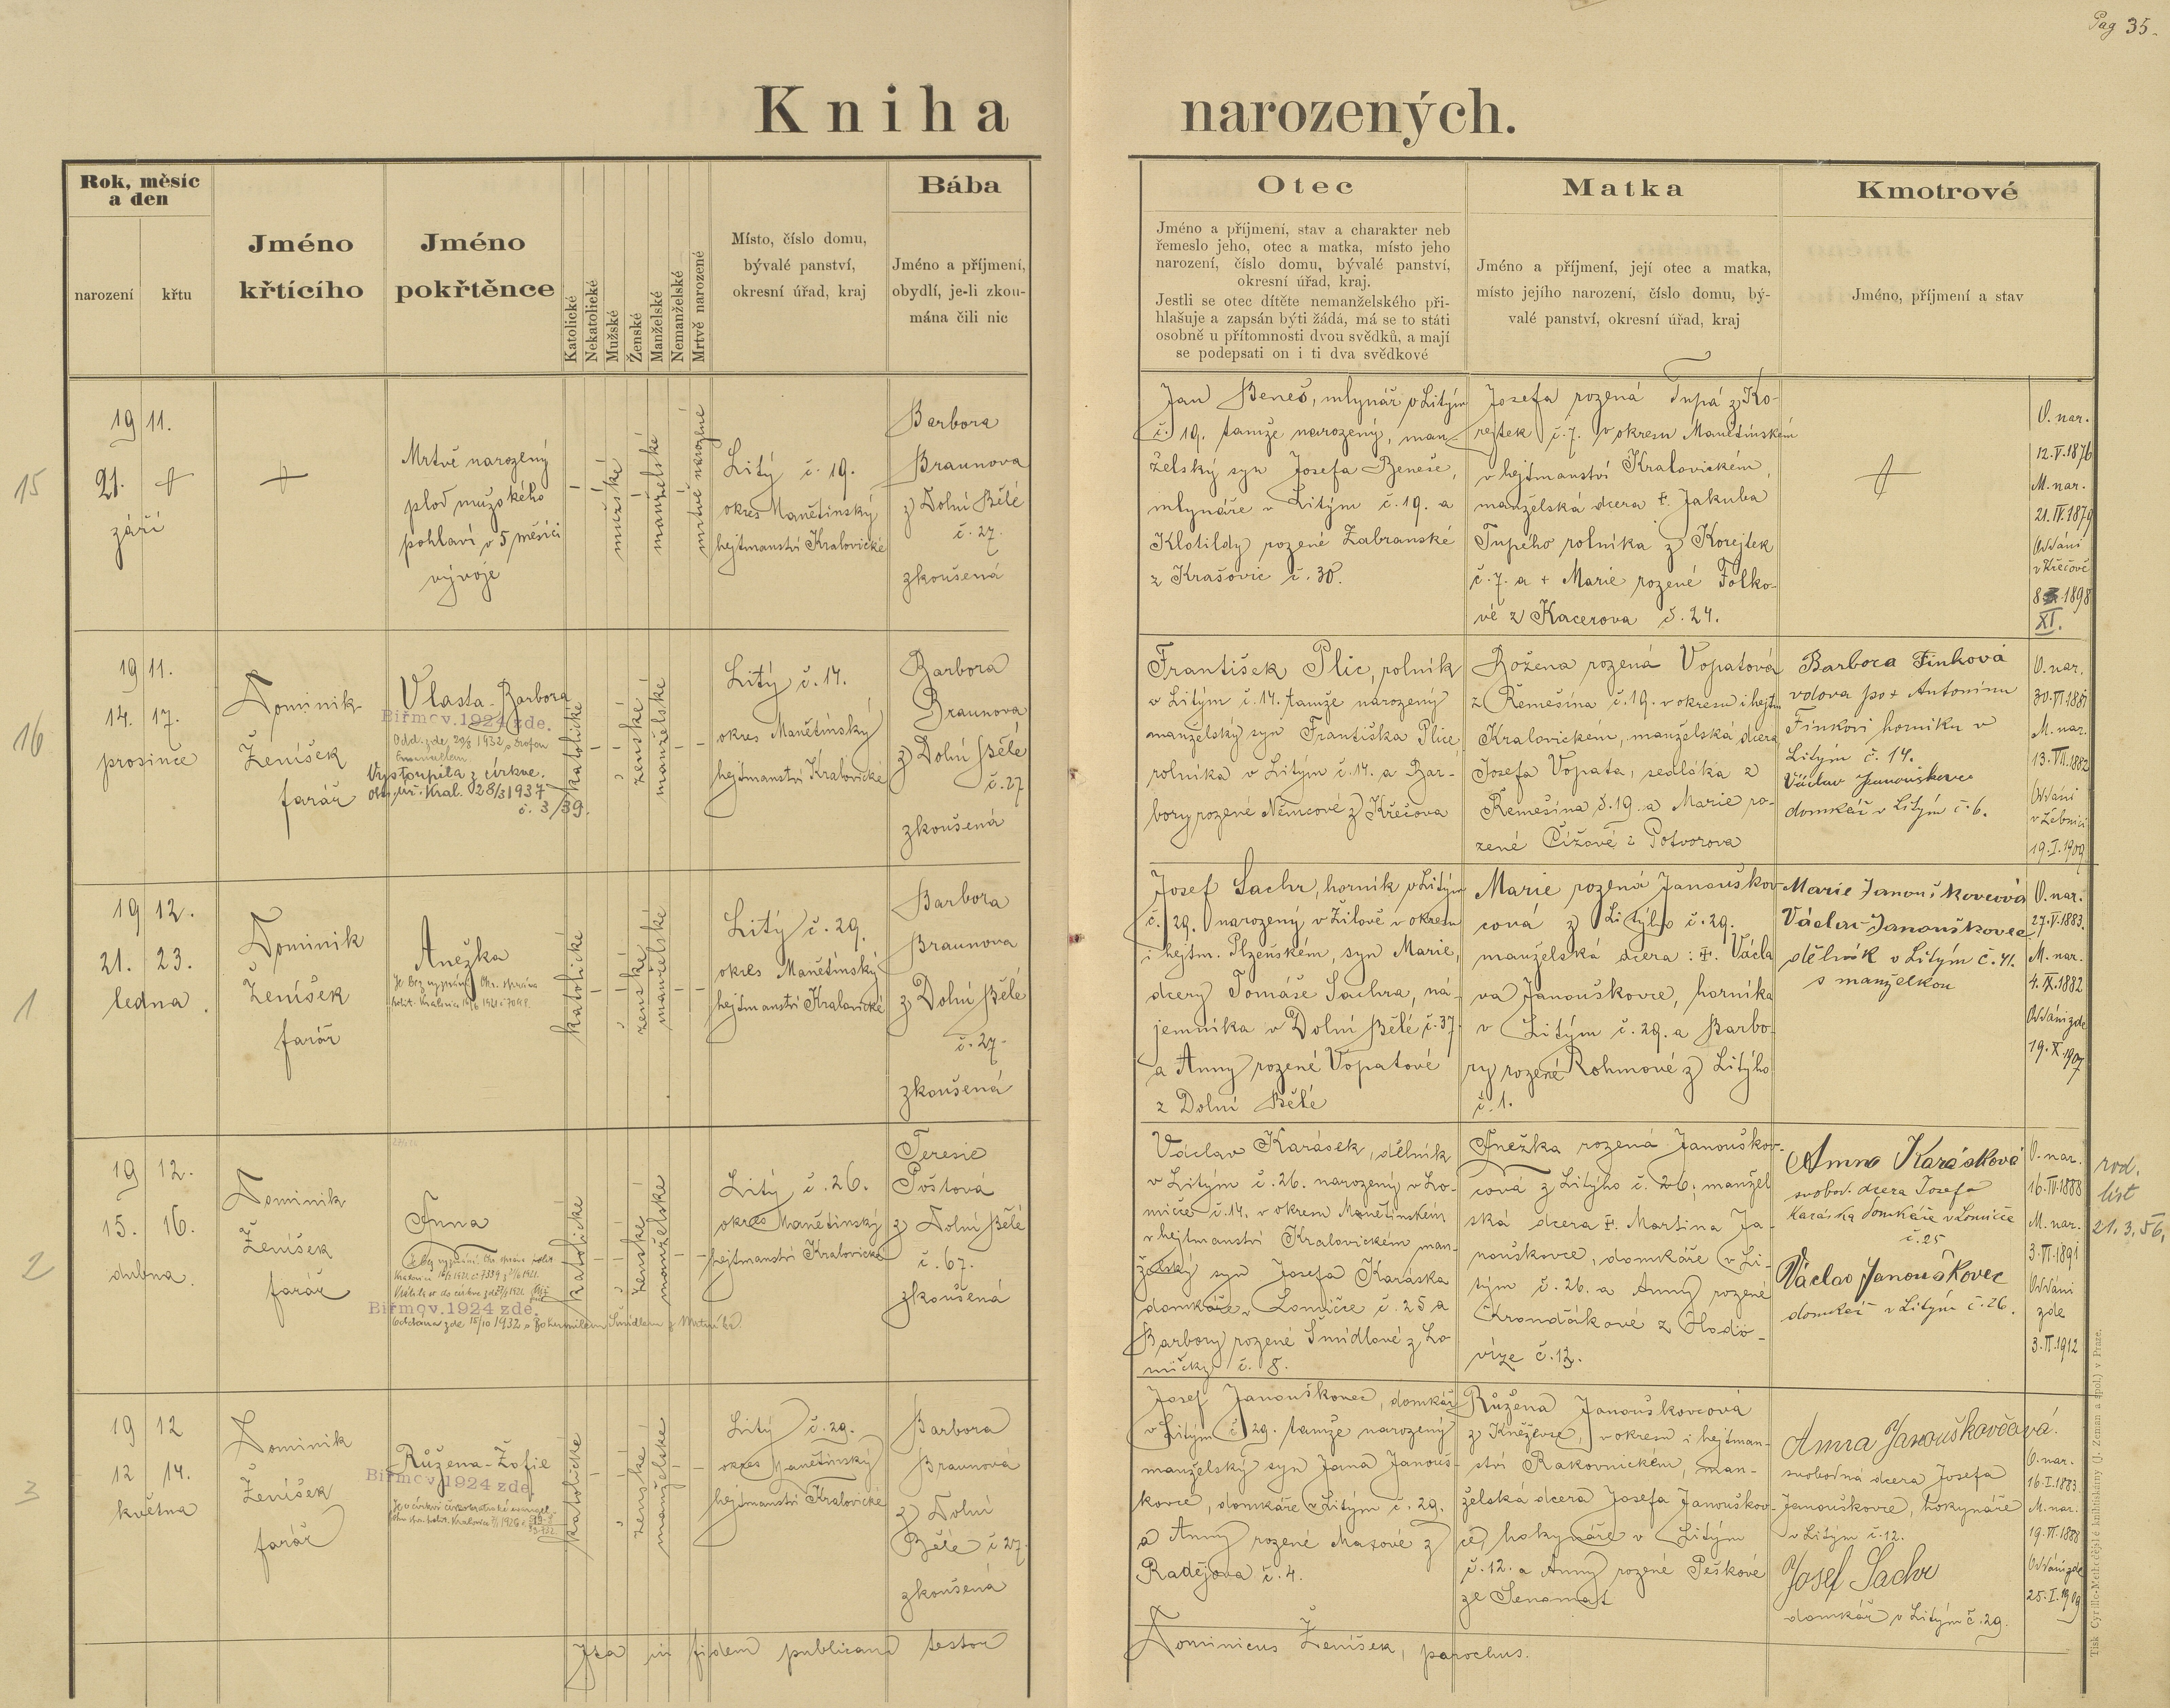 Pag 35.
Kniha narozených.
Rok, měsíc
a den
narození
křtu
Jméno
křtícího
Jméno
pokřtěnce
Katolické
Nekatolické
Mužské
Ženské
Manželské
Nemanželské
Mrtvě narozené
Místo, číslo domu,
bývalé panství,
okresní úřad, kraj
Bába
Jméno a příjmení,
obydlí, je-li zkou-
mána čili nic
Otec
Jméno a příjmení, stav a charakter neb
řemeslo jeho, otec a matka, místo jeho
narození, číslo domu, bývalé panství,
okresní úřad, kraj.
Jestli se otec dítěte nemanželského při-
hlašuje a zapsán býti žádá, má se to státi
osobně u přítomnosti dvou svědků, a mají
se podepsati on i ti dva svědkové
Matka
Jméno a příjmení, její otec a matka,
místo jejího narození, číslo domu, bý-
valé panství, okresní úřad, kraj
Kmotrové
Jméno, příjmení a stav
15
19 11.
21. +
září
+
Mrtvě narozený
plod mužského
pohlaví v 5 měsíci
vývoje
–
mužské
–
manželské
–
mrtvě narozené
Litý č. 19.
okres Manětínský
hejtmanství Kralovické
Barbora
Braunova
z Dolní Bělé
č. 27.
zkoušená
Jan Beneš, mlynář v Litým
č. 19. tamže narozený, man-
želský syn Josefa Beneše,
mlynáře v Litým č. 19. a
Klotildy rozené Zabranské
z Krašovic č. 30.
Josefa rozená Tupá z Ko-
rejtek č. 7. v okresu Manětínském
v hejtmanství Kralovickém,
manželská dcera +. Jakuba
Tupého rolníka z Korejtek
č. 7. a + Marie rozené Folko-
vé z Kacerova č. 24.
+
O. nar.
12.V.1876
M. nar.
21.IV.1879
Oddáni
v Křečově
8. 1898
XI.
16
19 11.
14. 17.
prosince
Dominik
Ženíšek
farář
Vlasta-Barbora
Biřmov. 1924 zde.
Vystoupila z církve.
28/3 1937
č. 3/39.
katolické
–
ženské
manželské
– –
Litý č. 14.
okres Manětínský
hejtmanství Kralovické
Barbora
Braunova
z Dolní Bělé
č. 27
zkoušená
František Plic, rolník
v Litým č. 14. tamže narozený
manželský syn Františka Plice,
rolníka v Litým č. 14. a Bar-
bory rozené Němcové z Křečova
Božena rozená Vopatová
z Řemešína č. 19. v okresu i hejtm.
Kralovickém, manželská dcera
Josefa Vopata, sedláka z
Řemešína č. 19. a Marie ro-
zené Čížové z Potvorova
Barbora Finková
vdova po + Antonínu
Finkovi horníku v
Litým č. 14.
Václav Janouškovec
domkář v Litým č. 6.
O. nar.
M. nar.
13.VII.1882
Oddáni
v Žebnici
19.I.1909
1
19 12.
21. 23.
ledna.
Dominik
Ženíšek
farář
Anežka
katolické
–
ženské
manželské
– –
Litý č. 29.
okres Manětínský
hejtmanství Kralovické
Barbora
Braunova
z Dolní Bělé
č. 27.
zkoušená
Josef Sachr, horník v Litým
č. 29. narozený v Žilově v okresu
i hejtm. Plzeňském, syn Marie,
dcery Tomáše Sachra, ná-
jemníka v Dolní Bělé č. 37.
a Anny rozené Vopatové
z Dolní Bělé
Marie rozená Janouškov-
cová z Litýho č. 29.
manželská dcera : +. Václa
va Janouškovce, horníka
v Litým č. 29. a Barbo-
ry rozené Rohmové z Litýho
č. 1.
Marie Janouškovcová
Václav Janouškovec
dělník v Litým č. 41.
s manželkou
O. nar.
27.V.1883.
M. nar.
4.IX.1882
Oddáni zde
19.X.1907
2
19 12.
15. 16.
dubna.
Dominik
Ženíšek
farář
Anna
Biřmov. 1924 zde.
Oddána zde 15/10 1932 s Bohumilem Šmídlem z
katolické
–
ženské
manželské
– –
Litý č. 26.
okres Manětínský
hejtmanství Kralovické
Terezie
Poštová
z Dolní Bělé
č. 67.
zkoušená
Václav Karásek, dělník
v Litým č. 26. narozený v Lo-
mičce č. 14. v okresu Manětínském
v hejtmanství Kralovickém man-
želský syn Josefa Karáska
domkáře v Lomičce č. 25 a
Barbory rozené Šmídlové z Lo-
mičky č. 8.
Anežka rozená Janouškov-
cová z Litýho č. 26; manžel
ská dcera +. Martina Ja-
nouškovce, domkáře v Li-
tým č. 26. a Anny rozené
Krondákové z Hodo-
víze č. 12.
Anna Karásková
svobod. dcera Josefa
Karáska domkáře v Lomičce
č. 25
Václav Janouškovec
domkář v Litým č. 26.
O. nar.
16.IV.1888
M. nar.
3.VI.1891
Oddáni
zde
3.II.1912
rod.
list
21.3.56.
3
19 12
12 14.
května
Dominik
Ženíšek
farář
Růžena-Žofie
Biřmov. 1924 zde.
katolické
–
ženské
manželské
– –
Litý č. 29.
okres Manětínský
hejtmanství Kralovické
Barbora
Braunová
z Dolní
Bělé č 27.
zkoušená
Josef Janouškovec, domkář
v Litým č. 29. tamže narozený
manželský syn Jana Janouš-
kovce, domkáře v Litým č. 29.
a Anny rozené Maxové z
Radějova č. 4.
Růžena Janouškovcová
z Kněževse, v okresu i hejtman-
ství Rakovnickém, man-
želská dcera Josefa Janouškov-
ce, hokynáře v Litým
č. 12. a Anny rozené Peškové
ze Senomat
Anna Janouškovčová.
svobodná dcera Josefa
Janouškovce, hokynáře
v Litým č. 12.
Josef Sachr
domkář v Litým č. 29.
O. nar.
16.I.1883.
M. nar.
19.VI.1888
Oddáni zde
25.I.1909
Ita in fidem publicam testor
Dominicus Ženíšek, parochus.
Tisk Cyrillo-Methodějské knihtiskárny (J. Zeman a spol.) v Praze.